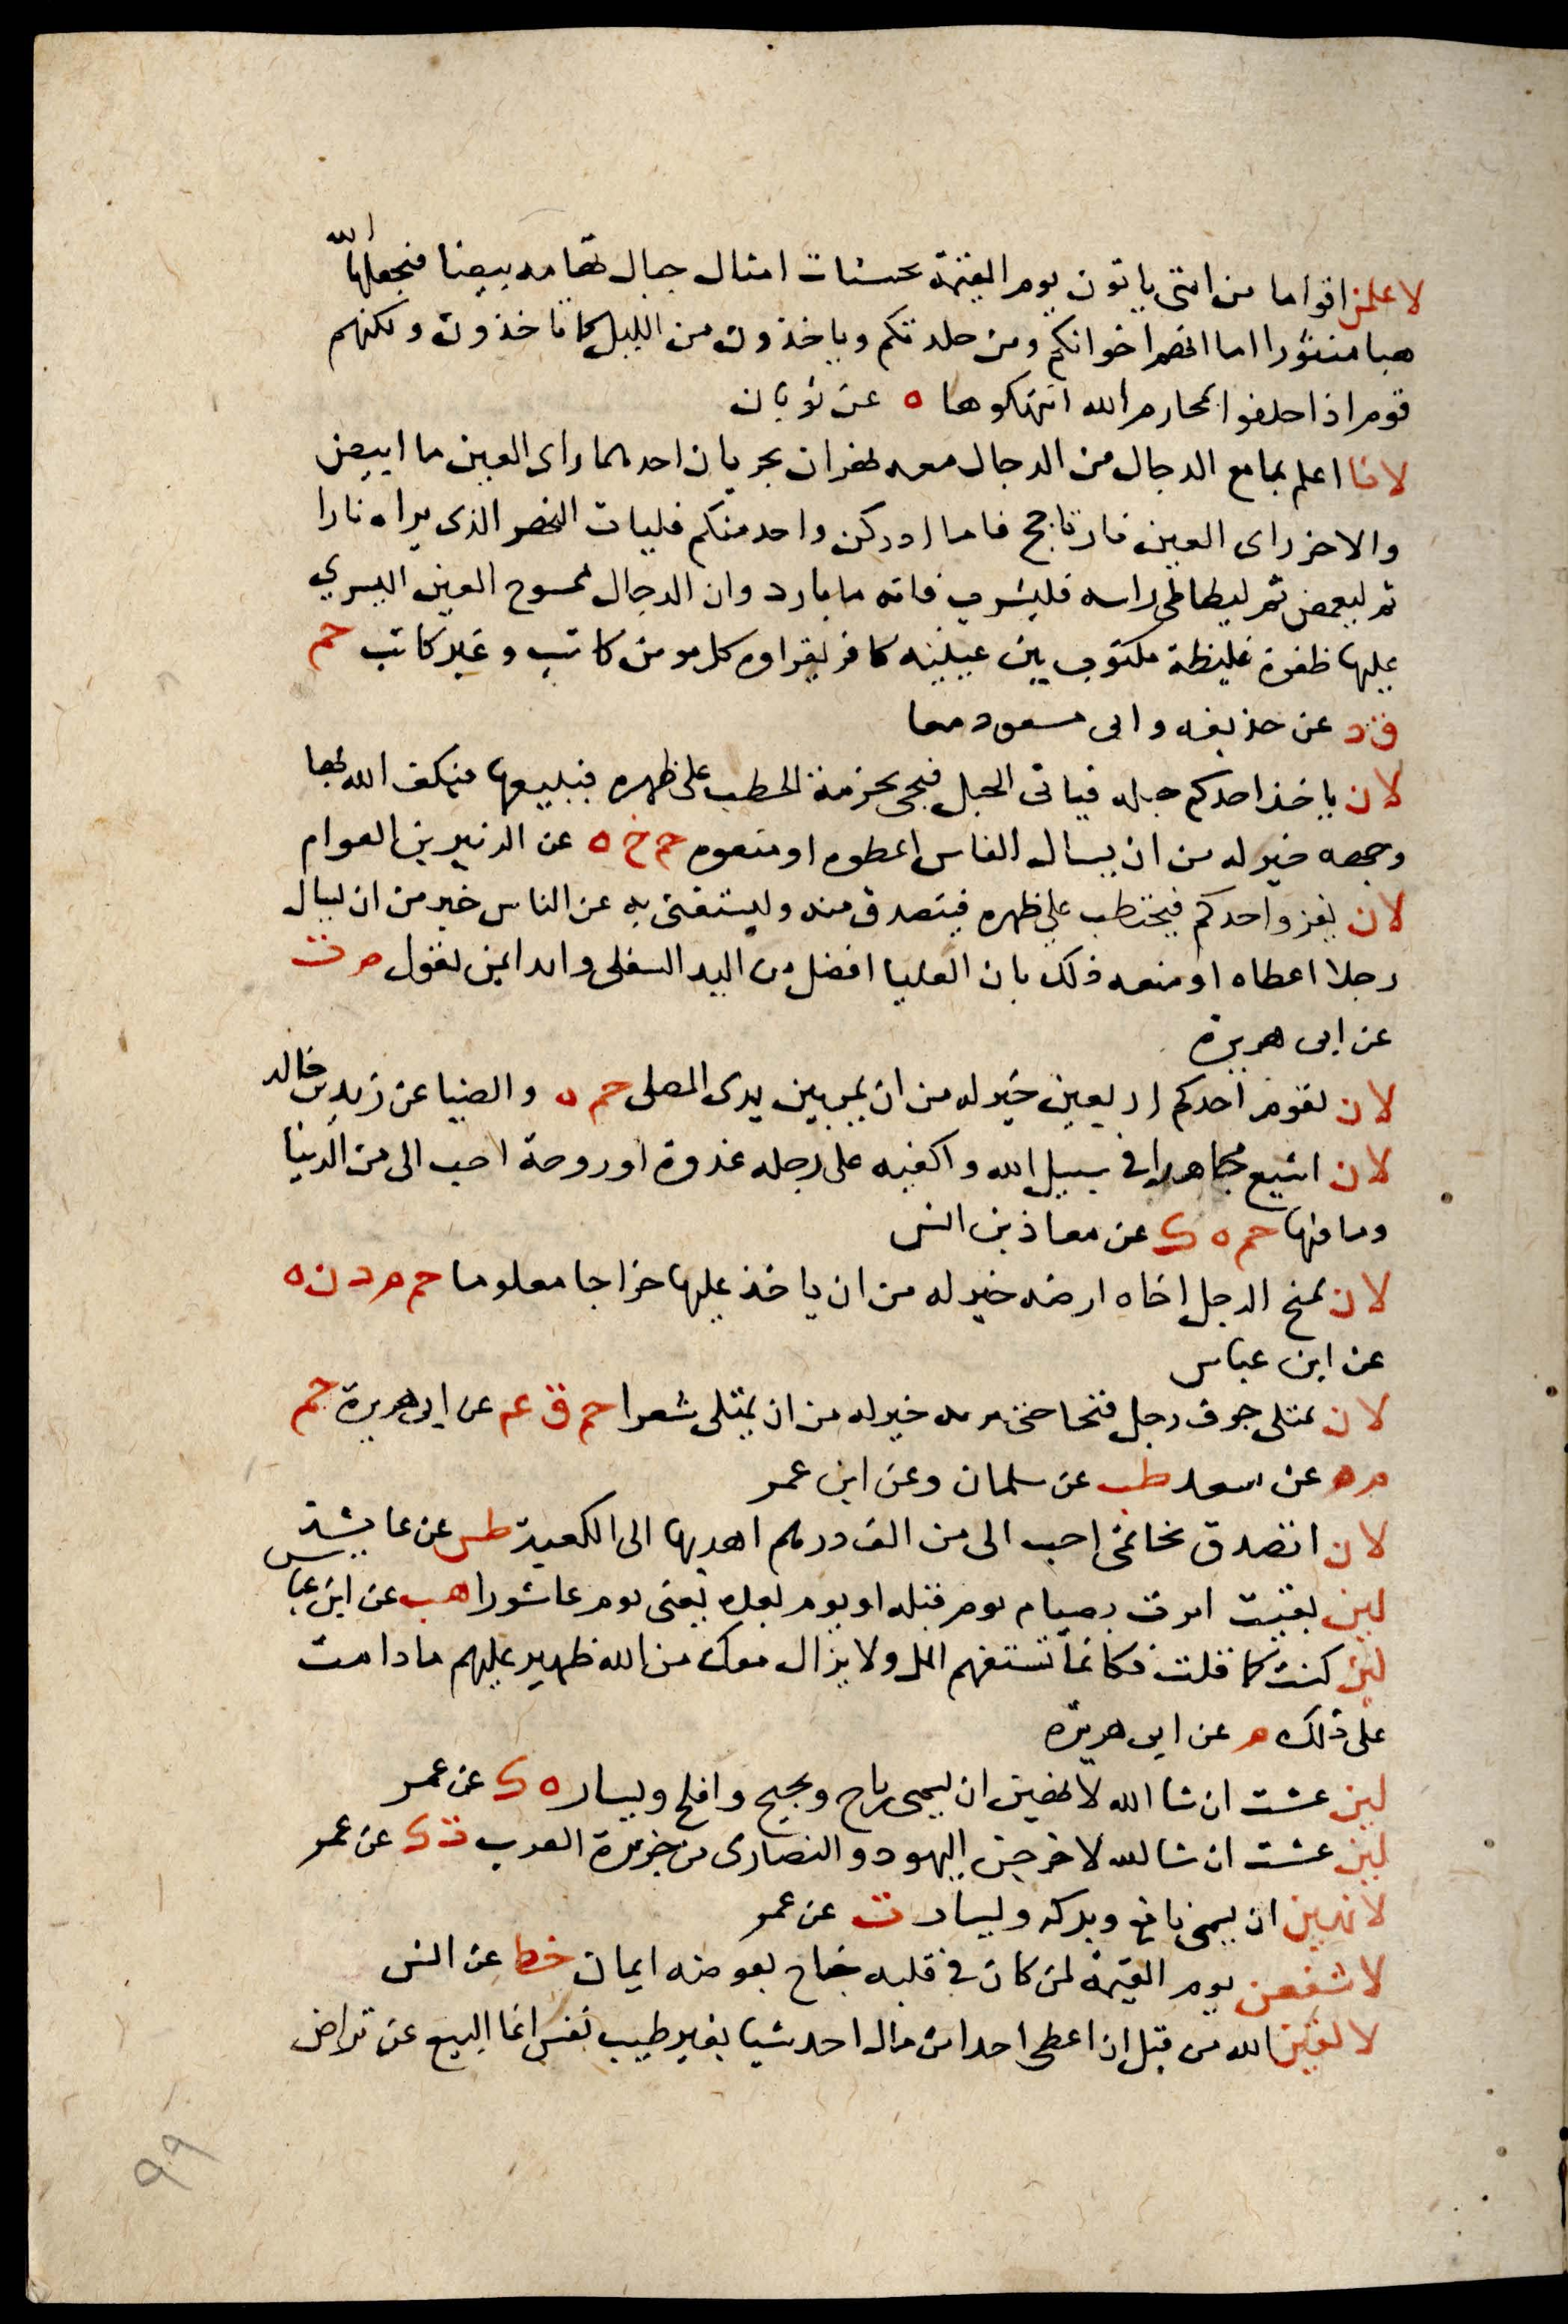 لاعلمن اقواما من امتى ياتون يوم القيمة بحسنات امثال جبال تهامه بيضا فيجعلها الله
هبا منثورا اما انهم اخوانكم ومن جلدتكم وياخذون من الليل كما تاخذون ولكنهم
قوم اذا خلوا بمحارم الله انتهكوها ه عن ثوبان
لانا اعلم بما مع الدجال من الدجال معه نهران يجريان احدهما راى العين ما ابيض
والاخر راى العين نار تاجج فاما ادركن واحد منكم فليات النهر الذى يراه نارا
ثم ليغمض ثم ليطاطى راسه فليشرب فانه ما بارد وان الدجال ممسوح العين اليسري
عليها ظفرة غليظة مكتوب بين عينيه كافر يقراوه كل مومن كاتب وغير كاتب حم
ق د عن حذيفه وابى مسعود معا
لان ياخذ احدكم حبله فياتى الجبل فيجى بحزمة الحطب على ظهره فيبيعها فيكف الله بها
وجهه خير له من ان يسال الناس اعطوه او منعوه حم خ ه عن الزبير بن العوام
لان يغزوا احدكم فيحتطب على ظهره فيتصدق منه وليستغنى به عن الناس خير من ان يسال
رجلا اعطاه او منعه ذلك بان العليا افضل من اليد السفلى وابدا بمن تعول م ت
عن ابى هريرة
لان يقوم احدكم اربعين خير له من ان يمر بين يدى المصلى حم ه والضيا عن زيد بن خالد
لان اشيع مجاهدا فى سبيل الله واكفيه على رجله غدوة او روحة احب الى من الدنيا
وما فيها حم ه ك عن معاذ بن انس
لان يمنح الرجل اخاه ارضه خير له من ان ياخذ عليها خراجا معلوما حم م د ن ه
عن ابن عباس
لان يمتلى جوف رجل قيحا حتى يريه خير له من ان يمتلى شعرا حم ق عم عن ابى هريرة حم
م ه عن سعد طب عن سلمان وعن ابن عمر
لان اتصدق بخاتمى احب الى من الف درهم اهديها الى الكعبة طس عن عايشة
لين بقيت امرت بصيام يوم قبله او يوم بعده يعنى يوم عاشورا هب عن ابن عباس
لين كنت كما قلت فكانما تسفهم المل ولا يزال معك من الله ظهير عليهم ما دامت
على ذلك م عن ابى هريرة
لين عشت ان شا الله لانهين ان يسمى رباح ونجيح وافلح ويسار ه ك عن عمر
لين عشت ان شا الله لاخرجن اليهود والنصارى من جزيرة العرب ت ك عن عمر
لانهين ان يسمى نافع وبركه ويسار ت عن عمر
لاشفعن يوم القيمة لمن كان فى قلبه جناح بعوضه ايمان خط عن انس
لالقين الله من قبل ان اعطى احدا من مال احد شيا بغير طيب نفس انما البيع عن تراض
٩٩